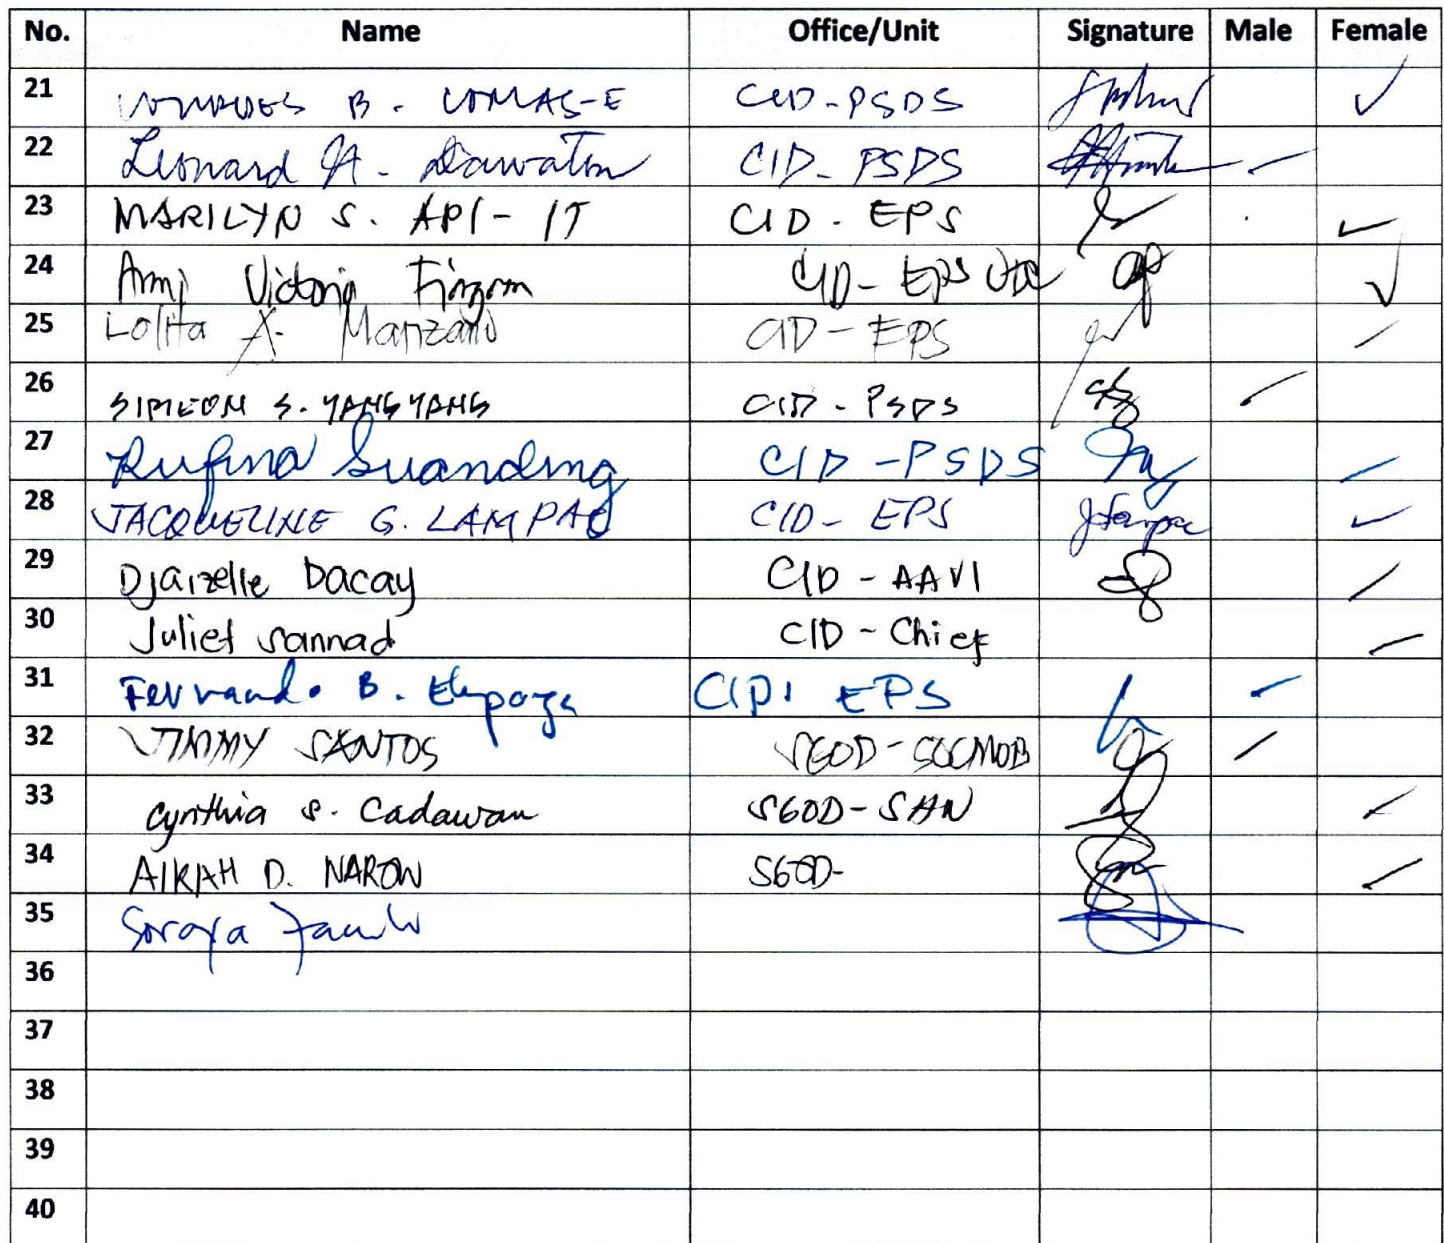 No. Name Office/Unit Signature Male Female
21 B. COMAS-E CID-PSDS
22 Leonard A. Dawaton CID- PSDS
23 MARILYN S. API-IT CID- EPS
24 Amy Victoria Tiongson CID- EPS
25 Lolita A. Manzano CID-EPS
26 SIMEON S. YANGYANG CID - PSDS
27 Rufina Suanding CID -PSDS
28 JACQUELINE G. LAMPAC CID- EPS
29 Djaizelle Dacay CID - AAVI
30 Juliet Sannad CID - Chief
31 Fernando B. CID. EPS
32 JIMMY SANTOS SGOD-SOCMOB
33 Cynthia S. Cadawan SGOD-SHN
34 AIKAH D. NAROW SGOD-
35 Soraya
36
37
38
39
40